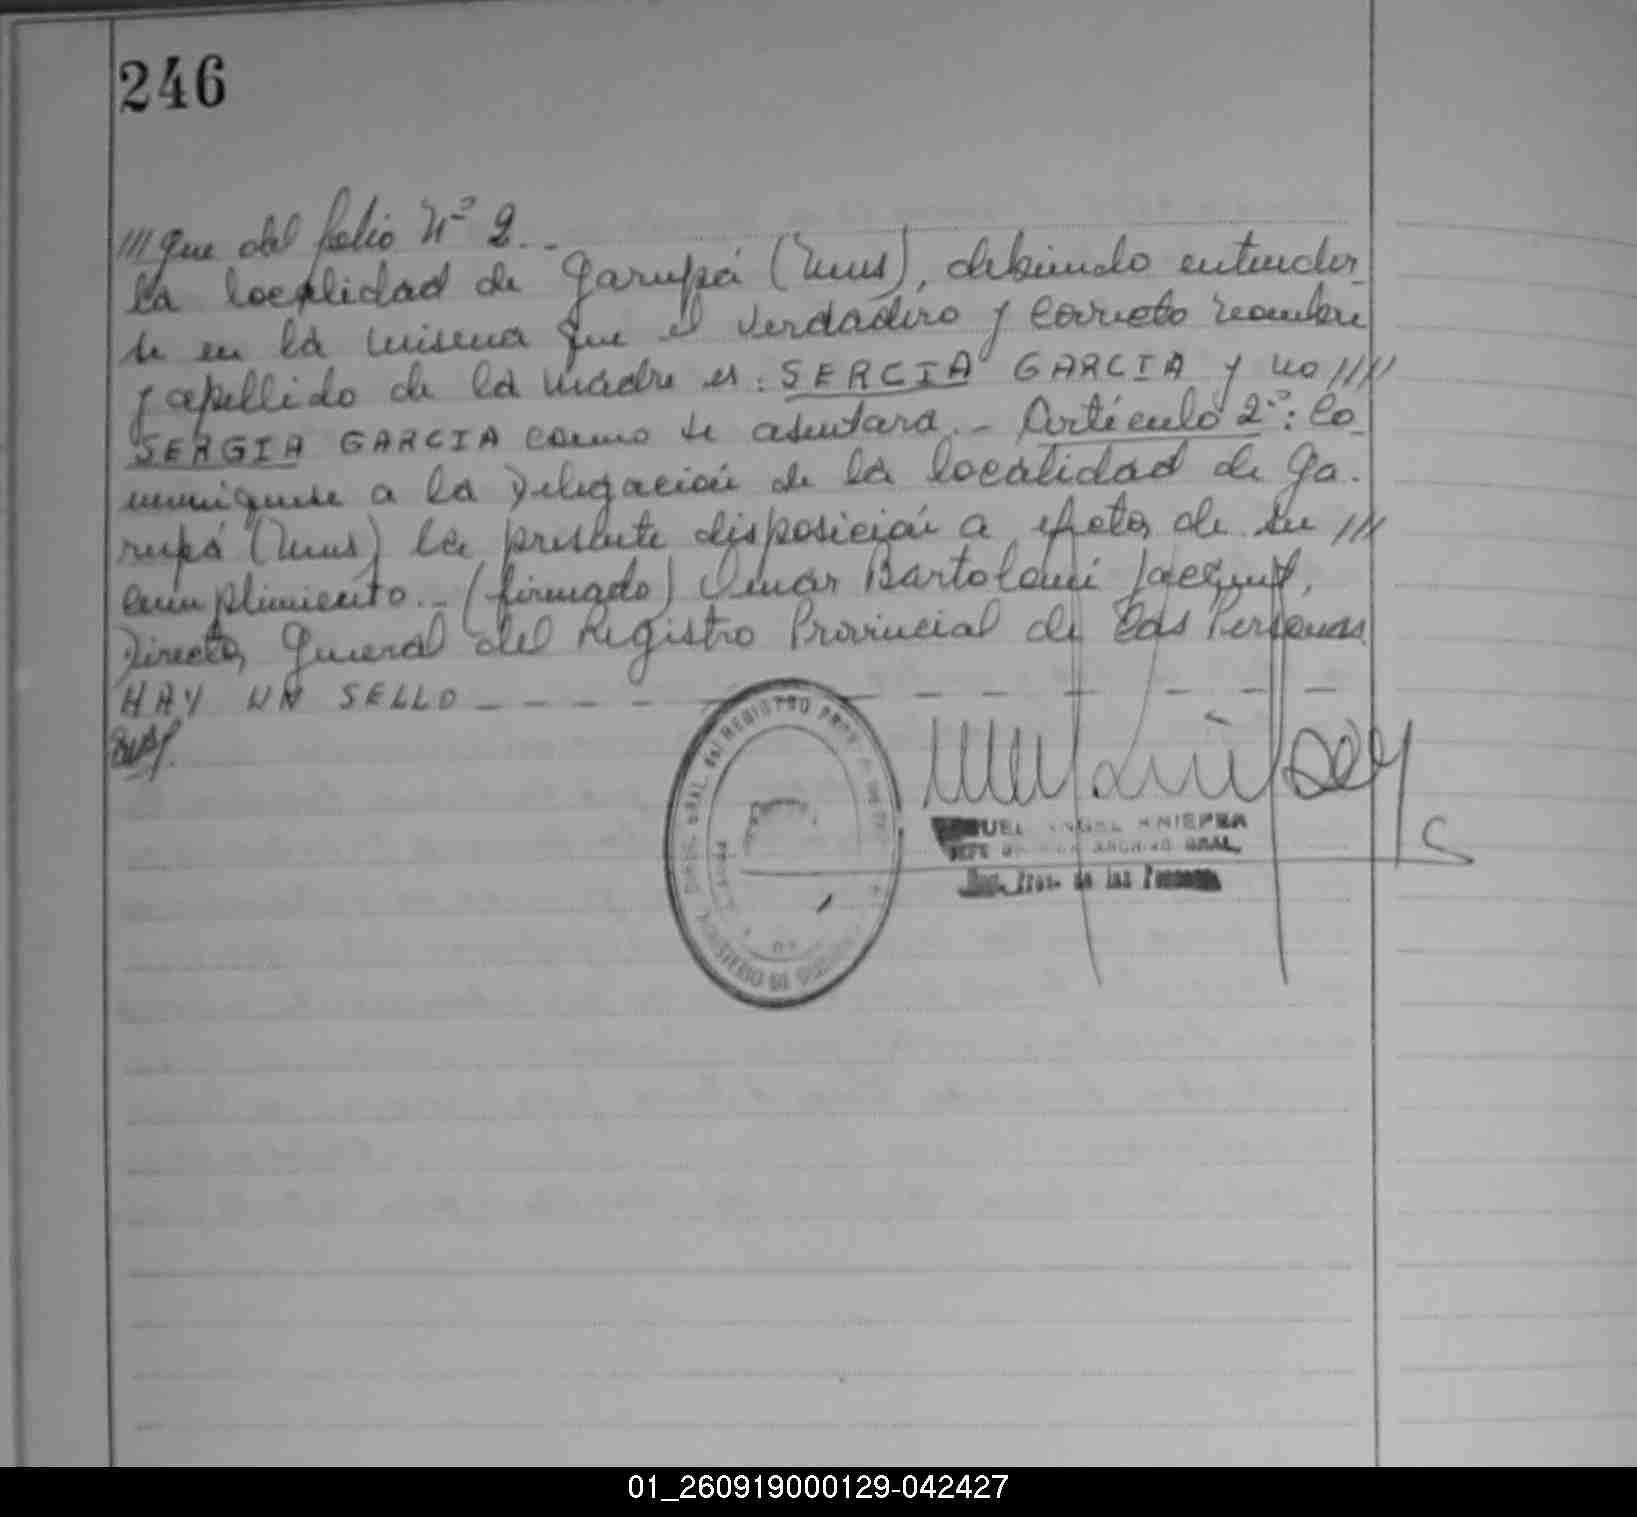 246
///que del folio Nº 2._
la localidad de Garupá (Mnes), debiendo entender
se en la misma que el verdadero y correcto nombre
y apellido de la madre es: SERCIA GARCIA y no ////
SERGIA GARCIA como se asentara._ Artículo 2º: Co_
muníquese a la Delegación de la localidad de Ga.
rupá (Mnes) la presente disposición a efectos de su ///
cumplimiento._ (firmado) Omar Bartolomé Jacquet,
Director General del Registro Provincial de las Personas
HAY UN SELLO _ _ _ _ _ _ _ _ _ _ _
DIREC. GRAL. del REGISTRO PROV. DE
MINISTERIO DE
ANGEL
JEFE ARCHIVO GRAL.
Reg. Prov. de las Personas
01_260919000129-042427